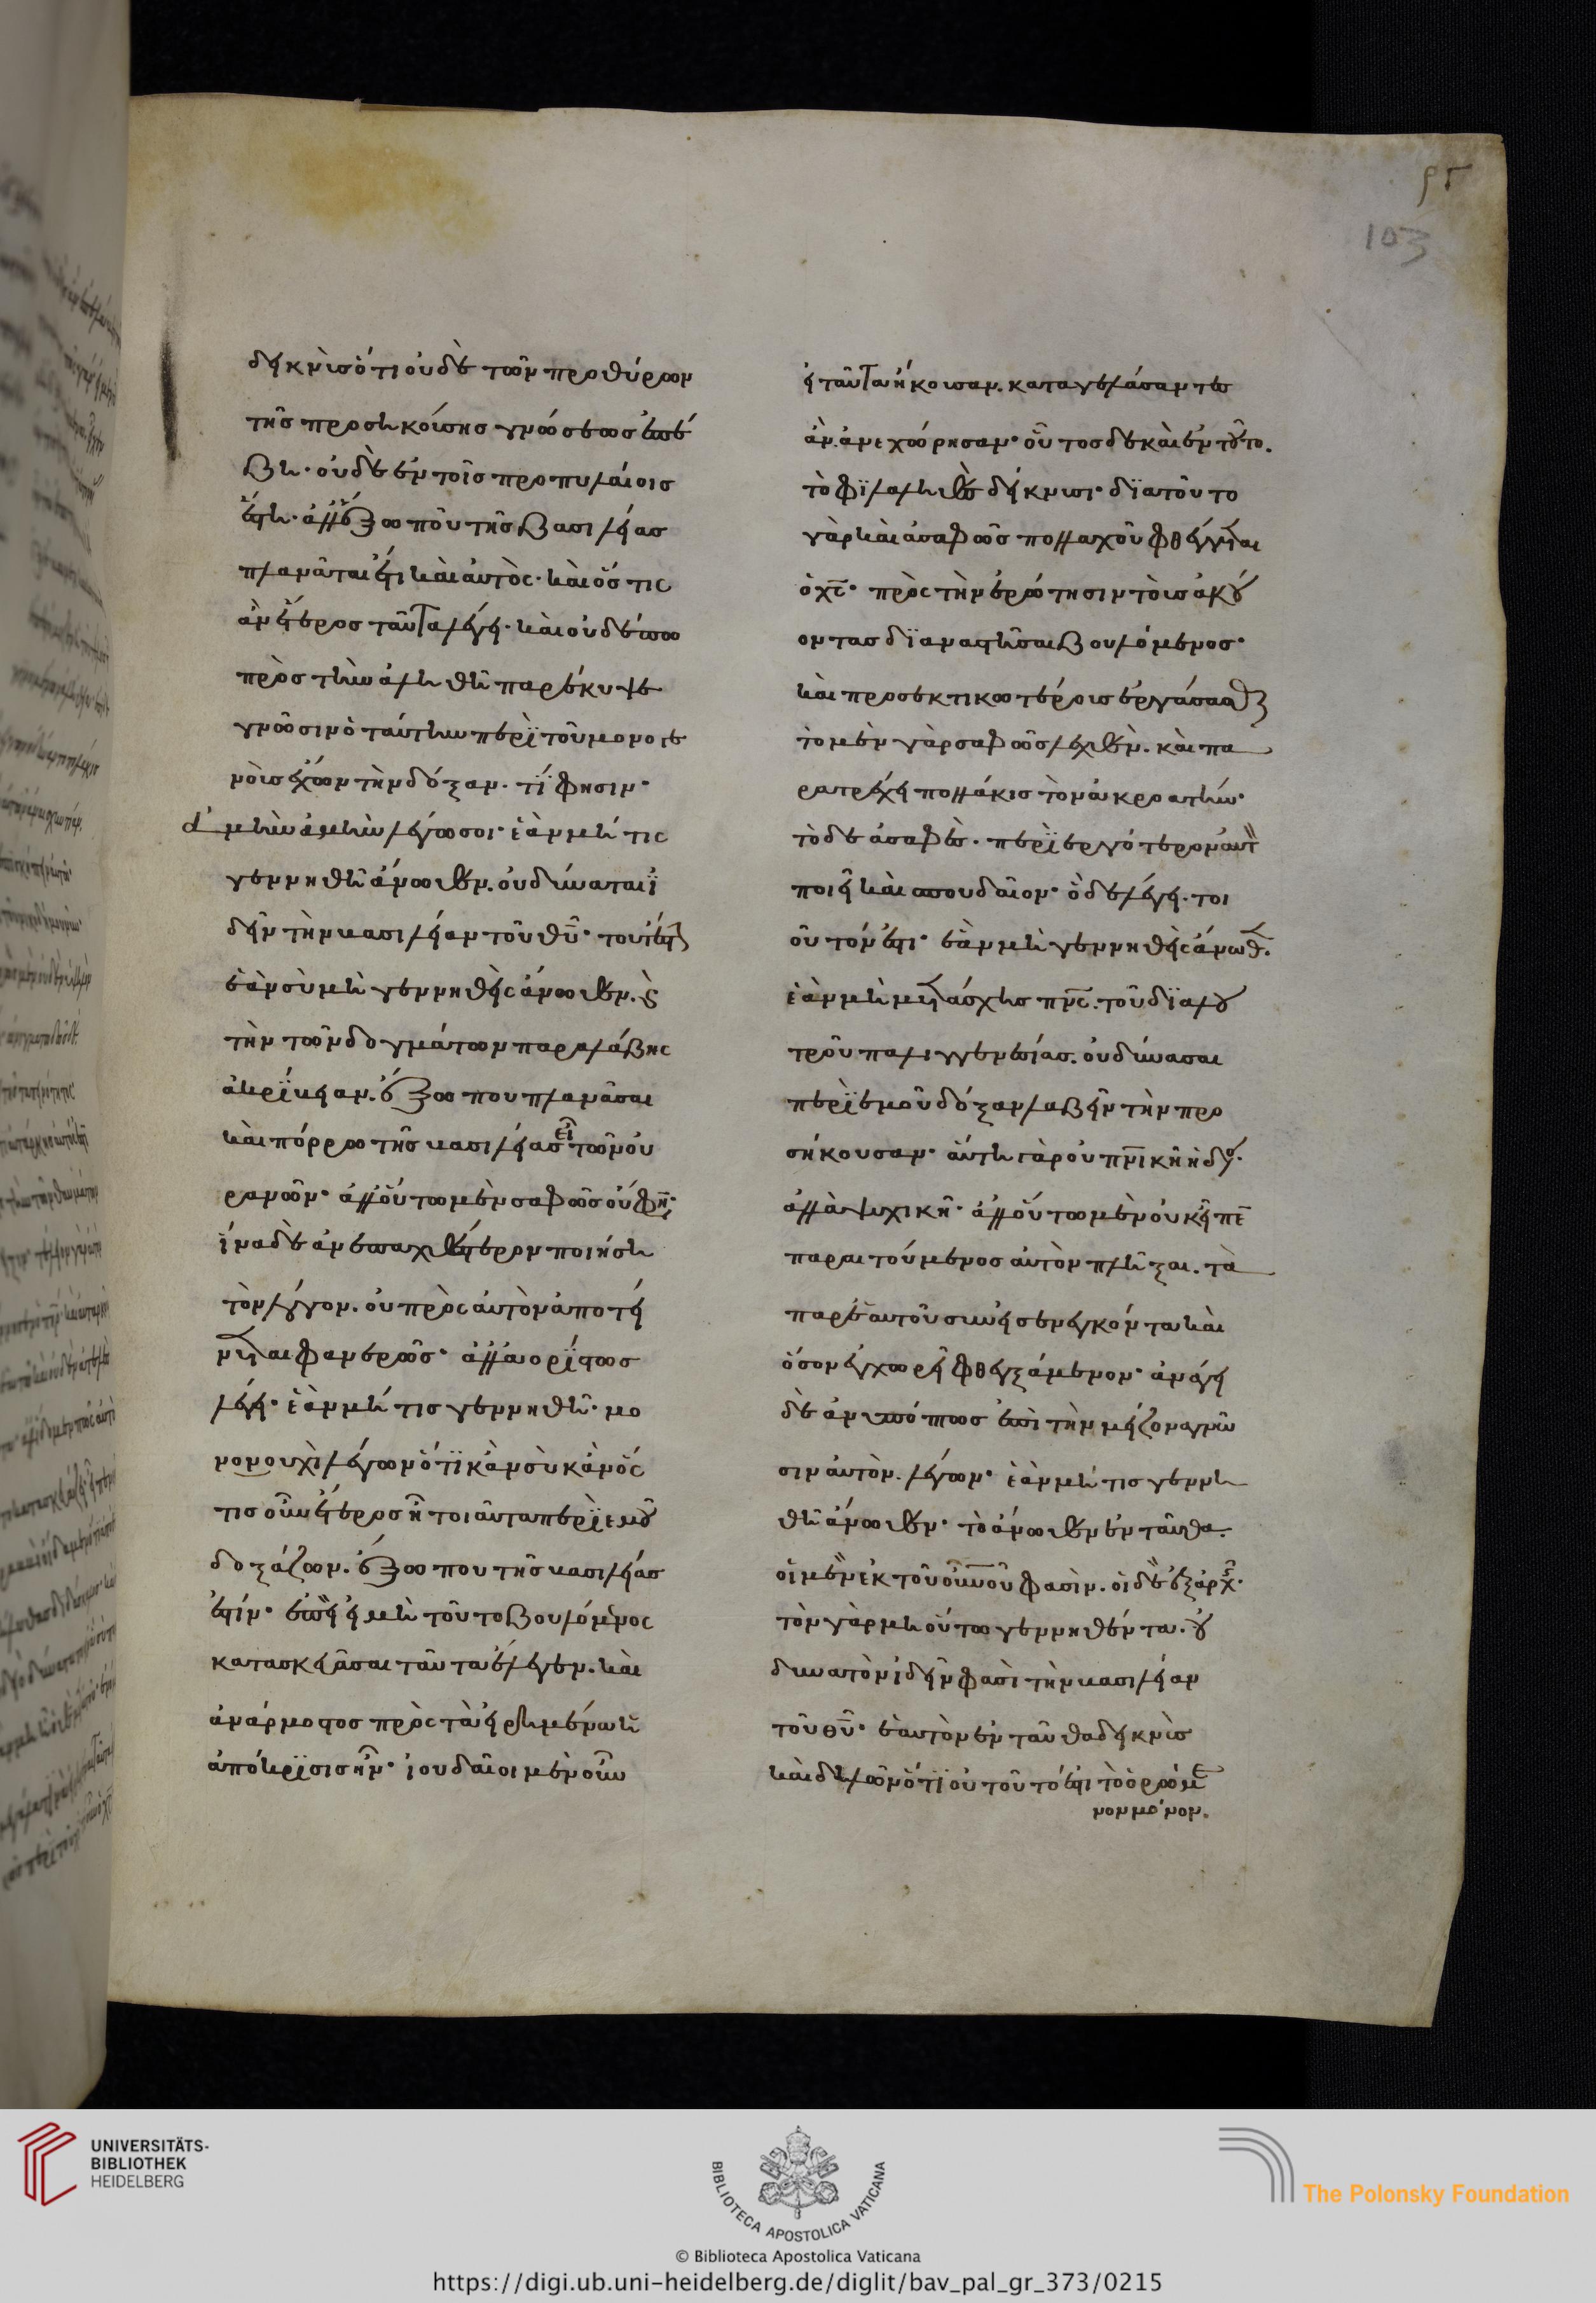 ϟϛ
103
δεικνὺς ὅτι οὐδὲ τῶν προθύρων
τῆς προσηκούσης γνώσεως ἐπέ
βη· οὐδὲ ἐν τοῖς προπυλαίοις
ἔστη· ἀλλ' ἔξω που τῆς βασιλείας
πλανᾶται ἔτι καὶ αὐτὸς· καὶ ὅστις
ἂν ἕτερος ταῦτα λέγει· καὶ οὐδέπω
πρὸς τὴν ἀληθῆ παρέκυψε
γνῶσιν ὁ ταύτην περὶ τοῦ μονογε
νοῦς ἔχων τὴν δόξαν· τί φησιν·
ἀμὴν ἀμὴν λέγω σοι· ἐὰν μή τις
γεννηθῆ ἄνωθεν. οὐ δύναται ἰ
δεῖν τὴν βασιλείαν τοῦ θυ· τουτέστι
ἐὰν σὺ μὴ γεννηθεὶς ἄνωθεν. ϛ
τὴν τῶν δογμάτων παραλάβης
ἀκρίβειαν. ἔξω που πλανᾶσαι
καὶ πόρρω τῆς βασιλείας εἶ τῶν οὐ
ρανῶν· ἀλλ' οὕτω μὲν σαφῶς οὔ φησι·
ἵνα δὲ ἀνεπαχθέστερον ποιήση
τὸν λόγον. οὐ πρὸς αὐτὸν ἀποτεί
νεται φανερῶς· ἀλλ' ἀορίστως
λέγει· ἐὰν μή τις γεννηθῆ· μο
νονουχὶ λέγων ὅτι κἂν σὺ κἂν ὅς
τις οὖν ἕτερος ἦ τοιαῦτα περὶ ἐμοῦ
δοξάζων. ἔξω που τῆς βασιλείας
ἐστίν· ἐπεὶ εἰ μὴ τοῦτο βουλόμενος
κατασκευάσαι ταῦτα ἔλεγεν. καὶ
ἀνάρμοστος πρὸς τὰ εἰρημένα ἡ
ἀπόκρισις ἦν· ἰουδαῖοι μὲν οὖν
εἰ ταῦτα ἤκουσαν. καταγελάσαντες
ἂν ἀνεχώρησαν· οὗτος δὲ κὰν τούτο.
τὸ φιλαληθὲς δείκνυσι· διατοῦτο
γὰρ καὶ ἀσαφῶς πολλαχοῦ φθέγγεται
ὁ χς· πρὸς τὴν ἐρώτησιν τοὺς ἀκού
οντας διαναστῆσαι βουλόμενος·
καὶ προσεκτικωτέρους ἐργάσασθαι
τὸ μὲν γὰρ σαφῶς λεχθὲν. καὶ πα
ρατρέχει πολλάκις τὸν ἀκροατήν·
τὸ δὲ ἀσαφὲς. περιεργότερον αὐτὸν
ποιεῖ καὶ σπουδαῖον· ὃ δὲ λέγει. τοι
οῦτόν ἐστι· ἐὰν μὴ γεννηθεὶς ἄνωθεν.
ἐὰν μὴ μετάσχης πνς. τοῦ διὰ λου
τροῦ παλιγγενεσίας. οὐ δύνασαι
περὶ ἐμοῦ δόξαν λαβεῖν τὴν προ
σήκουσαν· αὕτη γὰρ οὐ πνικὴ ἡ δόξα·
ἀλλὰ ψυχικὴ· ἀλλ' οὕτω μὲν οὐκ εἶπε
παραιτούμενος αὐτὸν πλῆξαι. τὰ
παρ' ἑαυτοῦ συνεισενεγκόντα καὶ
ὅσον ἐγχωρεῖ φθεγξάμενον· ἀνάγει
δὲ ἀνυπόπτως ἐπὶ τὴν μείζονα γνῶ
σιν αὐτὸν. λέγων· ἐὰν μή τις γεννη
θῆ ἄνωθεν· τὸ ἄνωθεν ἐνταῦθα.
οἱ μὲν ἐκ τοῦ οὐνοῦ φασὶν. οἱ δὲ ἐξ ἀρχῆς·
τὸν γὰρ μὴ οὕτω γεννηθέντα. οὐ
δυνατὸν ἰδεῖν φασὶ τὴν βασιλείαν
τοῦ θυ· ἑαυτὸν ἐνταῦθα δεικνὺς
καὶ δηλῶν ὅτι οὐ τοῦτό ἐστι τὸ ὁρώμε
νον μόνον.
UNIVERSITÄTS-
BIBLIOTHEK
HEIDELBERG
BIBLIOTECA APOSTOLICA VATICANA
The Polonsky Foundation
© Biblioteca Apostolica Vaticana
https://digi.ub.uni-heidelberg.de/diglit/bav_pal_gr_373/0215